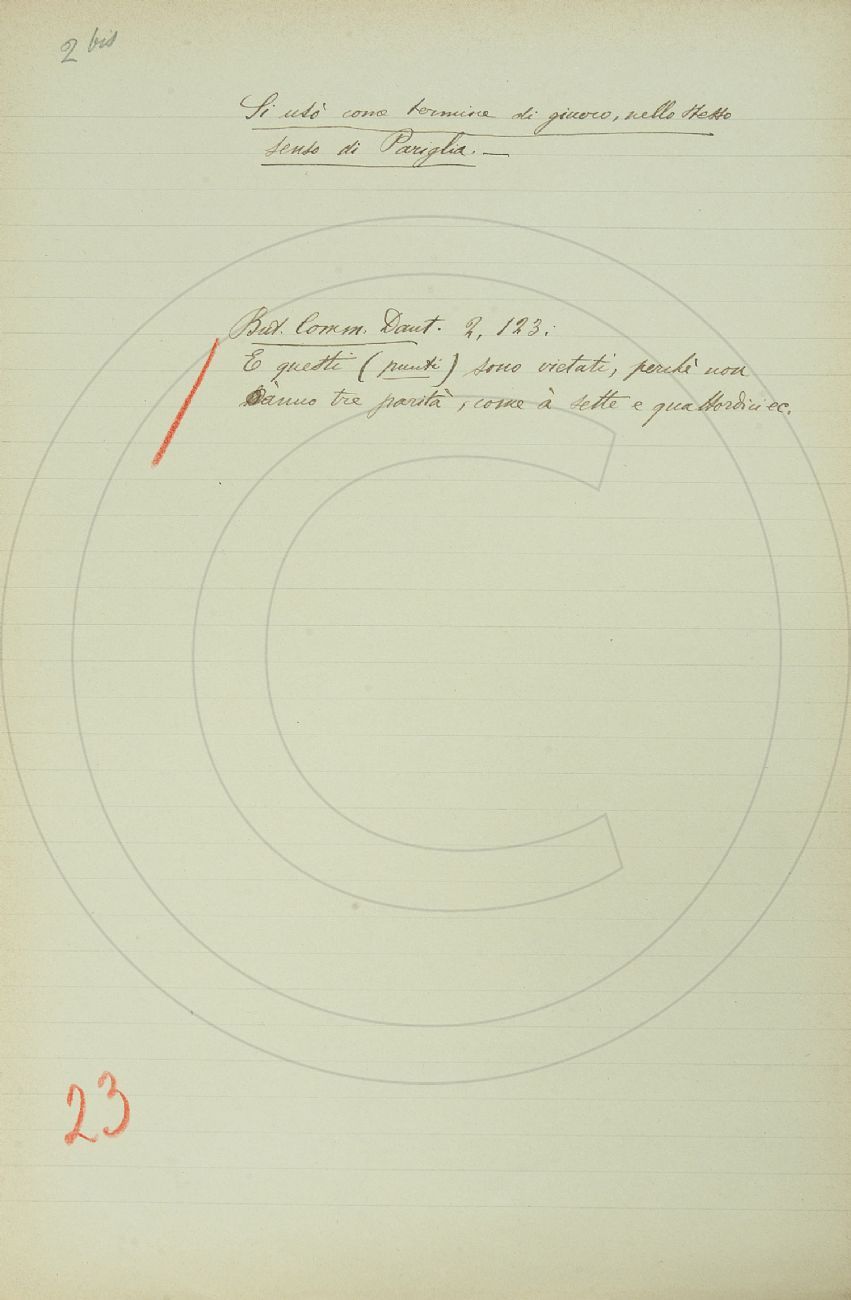 2 bis
Si usò come termine di giuoco, nello stesso
senso di Pariglia. —
But. Comm. Dant. 2, 123:
E questi (punti) sono vietati, perchè non
ànno tre parità, come à sette e quattordici ec.
23